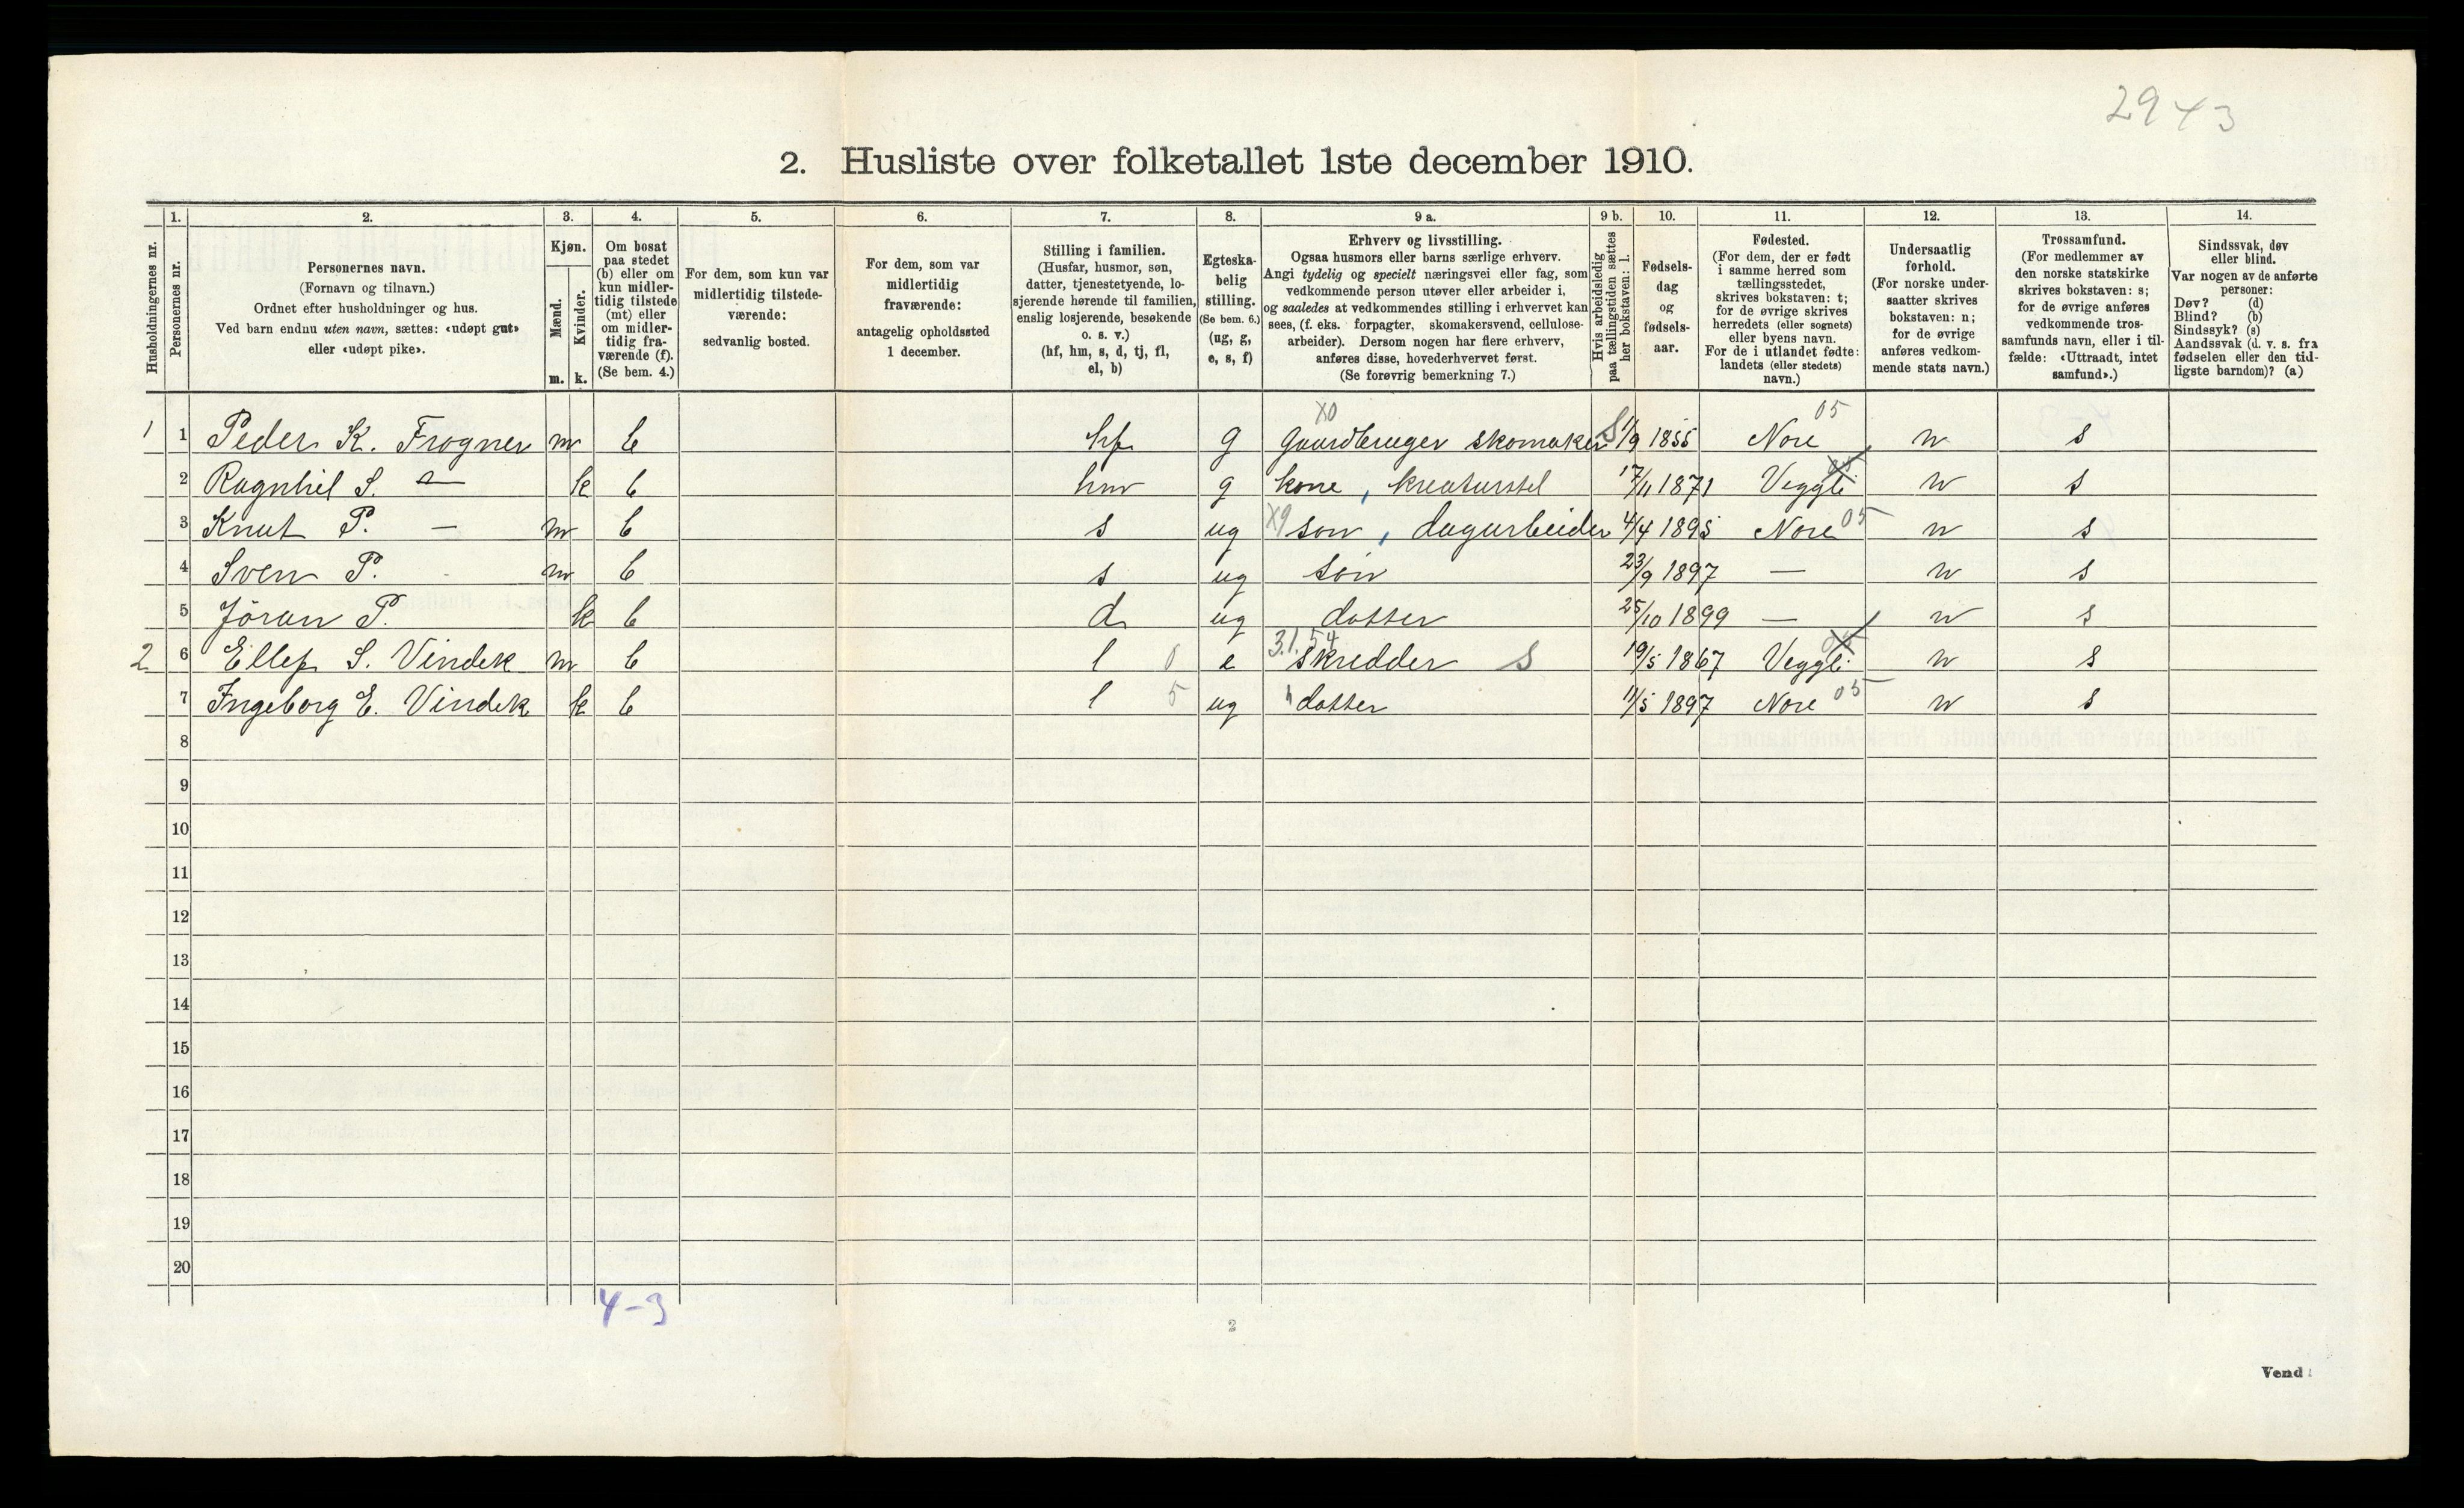 2943
2. Husliste over folketallet 1ste december 1910.
1. 2. 3. 4. 5. 6. 7. 8. 9 a. 9 b. 10. 11. 12. 13. 14.
Husholdningernes nr.
Personernes nr.
Personernes navn.
(Fornavn og tilnavn.)
Ordnet efter husholdninger og hus.
Ved barn endnu uten navn, sættes: «udøpt gut»
eller «udøpt pike».
Kjøn.
Mænd.
Kvinder.
m. k.
Om bosat
paa stedet
(b) eller om
kun midler-
tidig tilstede
(mt) eller
om midler-
tidig fra-
værende (f).
(Se bem. 4.)
For dem, som kun var
midlertidig tilstede-
værende:
sedvanlig bosted.
For dem, som var
midlertidig
fraværende:
antagelig opholdssted
1 december.
Stilling i familien.
(Husfar, husmor, søn,
datter, tjenestetyende, lo-
sjerende hørende til familien,
enslig losjerende, besøkende
o. s. v.)
(hf, hm, s, d, tj, fl,
el, b)
Egteska-
belig
stilling.
(Se bem. 6.)
(ug, g,
e, s, f)
Erhverv og livsstilling.
Ogsaa husmors eller barns særlige erhverv.
Angi tydelig og specielt næringsvei eller fag, som
vedkommende person utøver eller arbeider i,
og saaledes at vedkommendes stilling i erhvervet kan
sees, (f. eks. forpagter, skomakersvend, cellulose-
arbeider). Dersom nogen har flere erhverv,
anføres disse, hovederhvervet først.
(Se forøvrig bemerkning 7.)
Hvis arbeidsledig
paa tællingstiden sættes
her bokstaven: l.
Fødsels-
dag
og
fødsels-
aar.
Fødested.
(For dem, der er født
i samme herred som
tællingsstedet,
skrives bokstaven: t;
for de øvrige skrives
herredets (eller sognets)
eller byens navn.
For de i utlandet fødte:
landets (eller stedets)
navn.)
Undersaatlig
forhold.
(For norske under-
saatter skrives
bokstaven: n;
for de øvrige
anføres vedkom-
mende stats navn.)
Trossamfund.
(For medlemmer av
den norske statskirke
skrives bokstaven: s;
for de øvrige anføres
vedkommende tros-
samfunds navn, eller i til-
fælde: «Uttraadt, intet
samfund».)
Sindssvak, døv
eller blind.
Var nogen av de anførte
personer:
Døv? (d)
Blind? (b)
Sindssyk? (s)
Aandssvak (d. v. s. fra
fødselen eller den tid-
ligste barndom)? (a)
X0 05
1 1 Peder K. Frogner m b hf g Gaardbruger skomaker S 1/9 1855 Nore n s
2 Ragnhil S. — k b hm g kone, kreaturstel 17/11 1871 Veggli n s
3 Knut P. — m b s ug X9 søn, dagarbeider 4/4 1895 Nore 05 n s
4 Sven P. m b s ug søn 23/9 1897 — n s
5 Jöran P. k b d ug datter 25/10 1899 — n s
3.1.54
2 6 Ellef S. Vindek m b l 0 e skredder S 19/5 1867 Veggli n s
7 Ingeborg E. Vindek k b l 5 ug datter 11/5 1897 Nore 05 n s
8
9
10
11
12
13
14
15
16
17
18
19
20
4-3
2
Vend